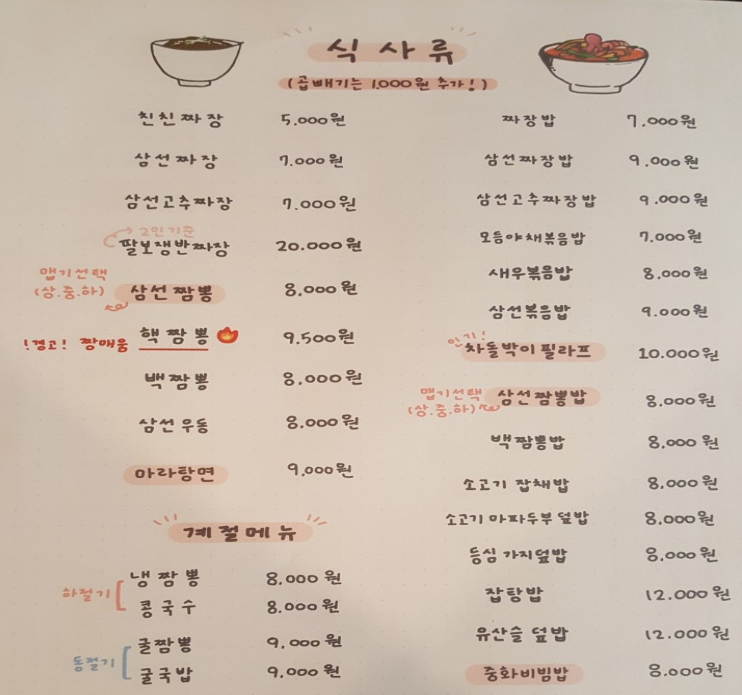 식사류
(곱빼기는 1,000원 추가!)
친친짜장 5,000원
삼선짜장 7,000원
삼선고추짜장 7,000원
2인기준
팔보쟁반짜장 20,000원
맵기선택
(상.중.하)
삼선짬뽕 8,000원
!경고! 짱매움 핵짬뽕 9,500원
백짬뽕 8,000원
삼선우동 8,000원
마라탕면 9,000원
계절메뉴
하절기
냉짬뽕 8,000원
콩국수 8,000원
동절기
굴짬뽕 9,000원
굴국밥 9,000원
짜장밥 7,000원
삼선짜장밥 9,000원
삼선고추짜장밥 9,000원
모듬야채볶음밥 7,000원
새우볶음밥 8,000원
삼선볶음밥 9,000원
인기!
차돌박이필라프 10,000원
맵기선택
(상.중.하)
삼선짬뽕밥 8,000원
백짬뽕밥 8,000원
소고기 잡채밥 8,000원
소고기 마파두부 덮밥 8,000원
등심 가지덮밥 8,000원
잡탕밥 12,000원
유산슬 덮밥 12,000원
중화비빔밥 8,000원